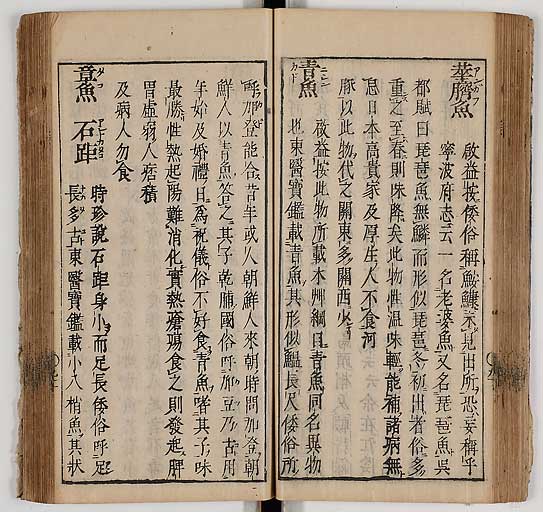 華臍魚
啟益按倭俗稱鮟鱇未見出所恐妄稱乎
寧波府志云一名老婆魚又名琵琶魚吳
都賦曰琵琶魚無鱗而形似琵琶冬初出者俗多
重之至春則味降矣此物性温味輕能補諸病無
忌日本高貴家及厚生人不食河
豚以此物代之關東多關西少
青魚
啟益按此物所載本艸綱目青魚同名異物
也東醫寶鑑載青魚其形似鰮長尺倭俗所
呼加登能合昔年或人朝鮮人來朝時問加登朝
鮮人以青魚答之其子乾脯國俗呼加豆乃古用
年始及婚禮日為祝儀俗不好食青魚嗜其子味
最勝性熱起陽難消化實熱瘡瘍食之則發起脾
胃虛弱人痞積
及病人勿食
章魚 石距
時珍說石距身小而足長倭俗呼足
長多古東醫寶鑑載小八梢魚其狀